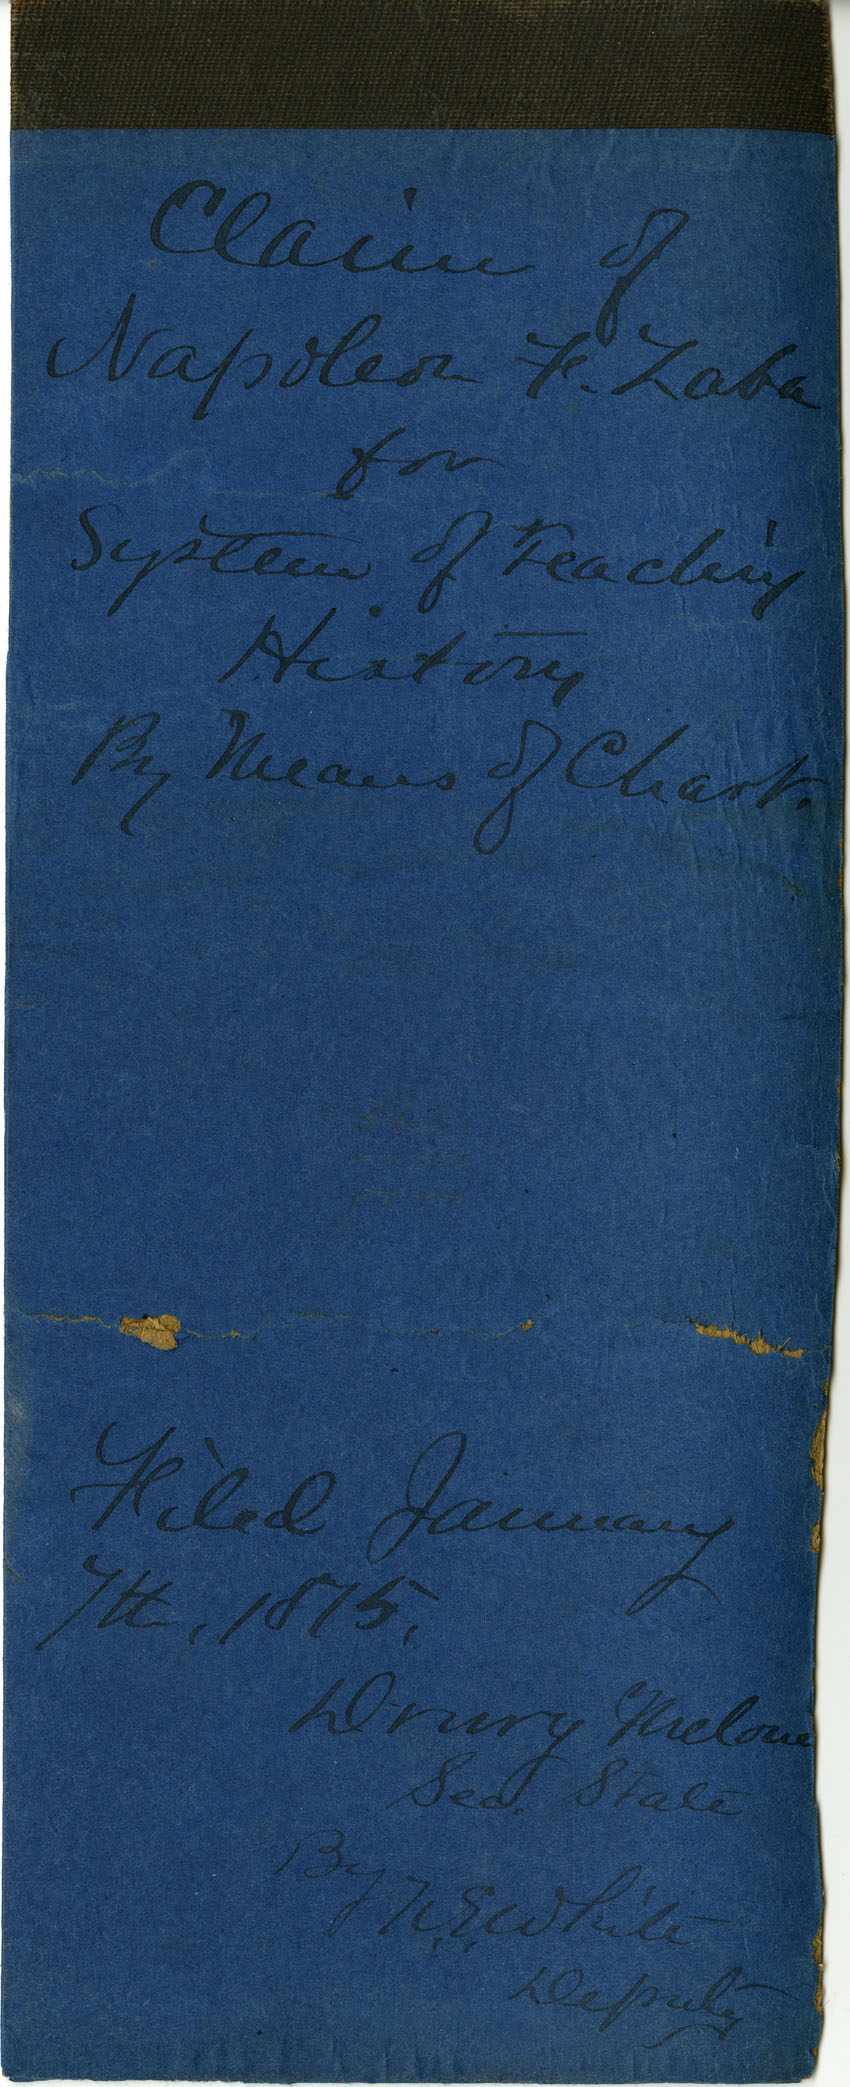 Claim of
Napoleon F. Zaba
for
System of Teaching
History
By Means of Chart.
Filed January
7th, 1875.
Drury Melone
Sec. State
By N.E. White
Deputy